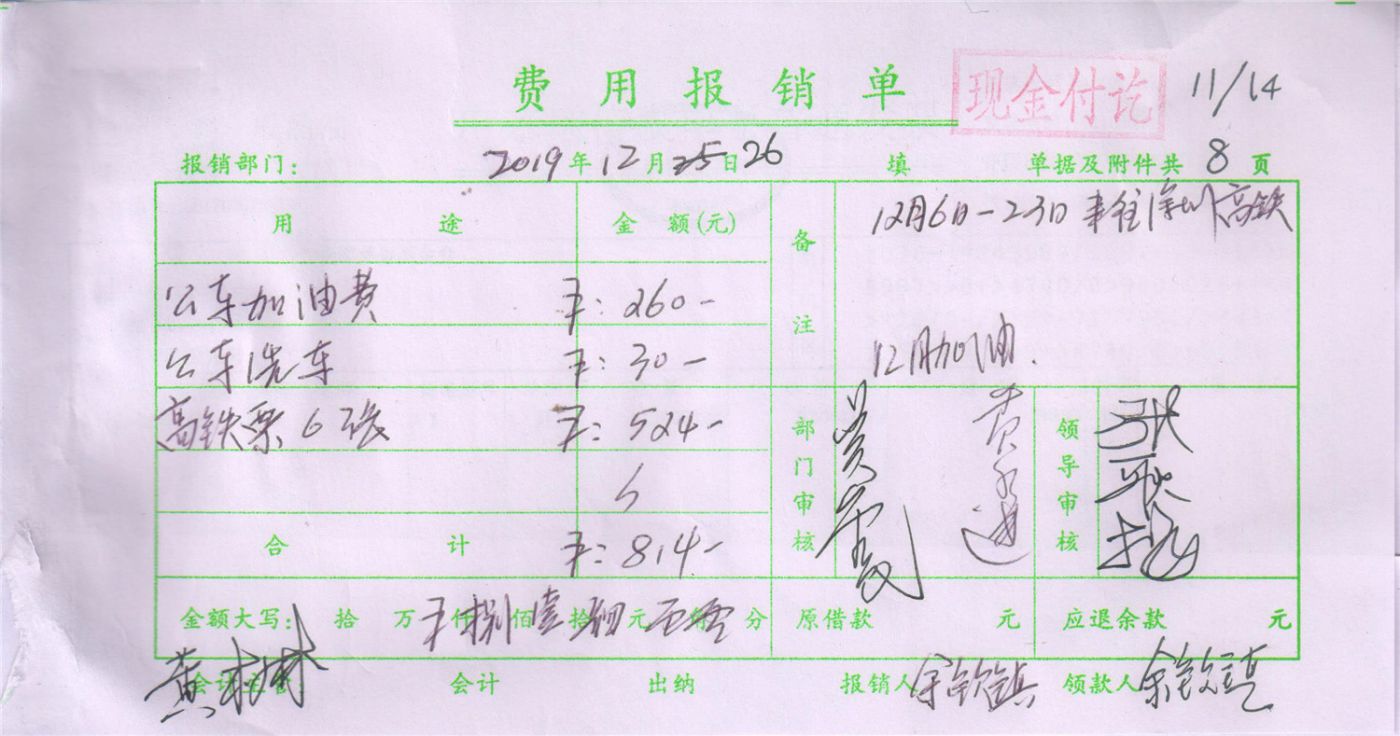 费用报销单 现金付讫 11/14
报销部门: 2019年12月25日26 填 单据及附件共8页
用途 金额(元) 备注 12月6日-23日 高铁
公车加油费 ¥: 260-
公车洗车 ¥: 30- 12月加油.
高铁票6张 ¥: 524- 部门审核 领导审核
合计 ¥: 814-
金额大写: 拾万仟捌佰壹拾肆元 分 原借款 元 应退余款 元
会计主管 会计 出纳 报销人 余钦镇 领款人 余钦镇